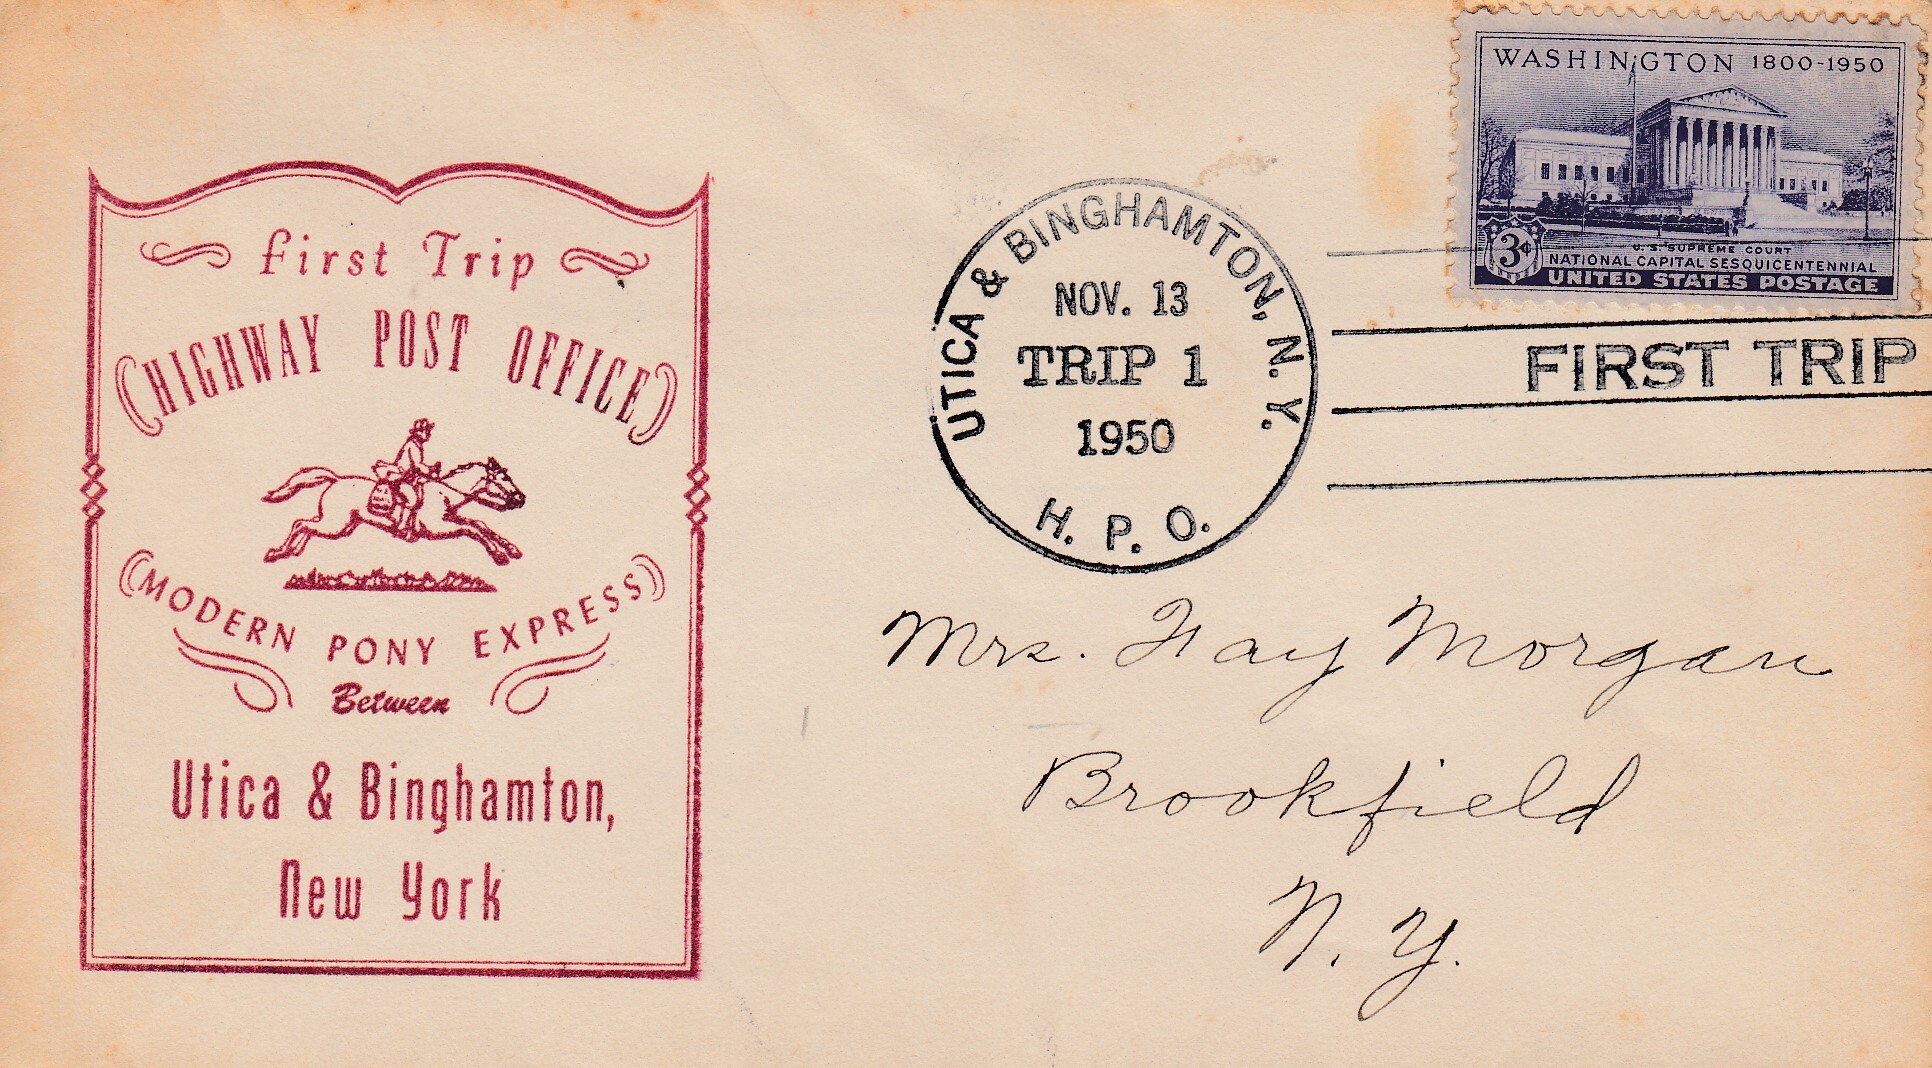 First Trip
HIGHWAY POST OFFICE
MODERN PONY EXPRESS
Between
Utica & Binghamton,
New York
UTICA & BINGHAMTON, N.Y.
NOV. 13
TRIP 1
1950
H. P. O.
WASHINGTON 1800-1950
3¢
U. S. SUPREME COURT
NATIONAL CAPITAL SESQUICENTENNIAL
UNITED STATES POSTAGE
FIRST TRIP
Mrs. Fay Morgan
Brookfield
N. Y.